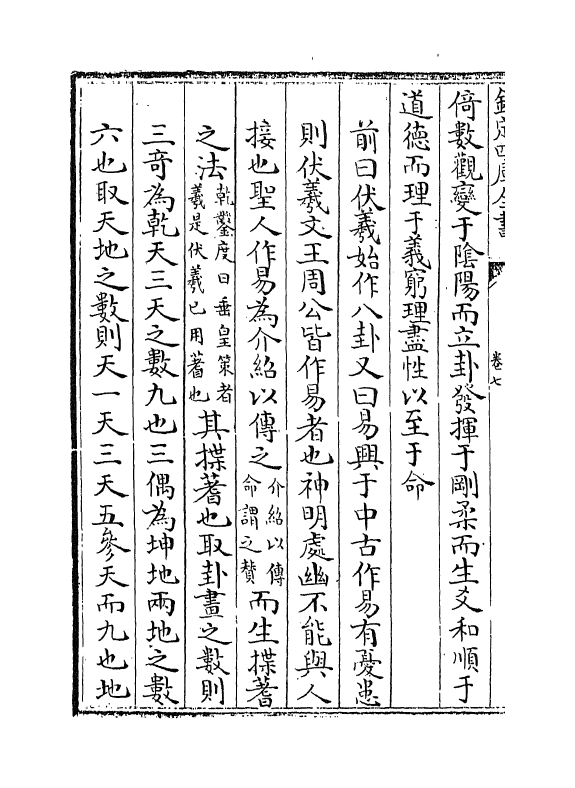 欽定四庫全書
卷七
倚數觀變于陰陽而立卦發揮于剛柔而生爻和順于
道德而理于義窮理盡性以至于命
前曰伏羲始作八卦又曰易興于中古作易有憂患
則伏羲文王周公皆作易者也神明處幽不能與人
接也聖人作易為介紹以傳之介紹以傳命謂之贊而生揲蓍
之法乾鑿度曰垂皇策者羲是伏羲已用蓍也其揲蓍也取卦畫之數則
三奇為乾天三天之數九也三偶為坤地兩地之數
六也取天地之數則天一天三天五參天而九也地